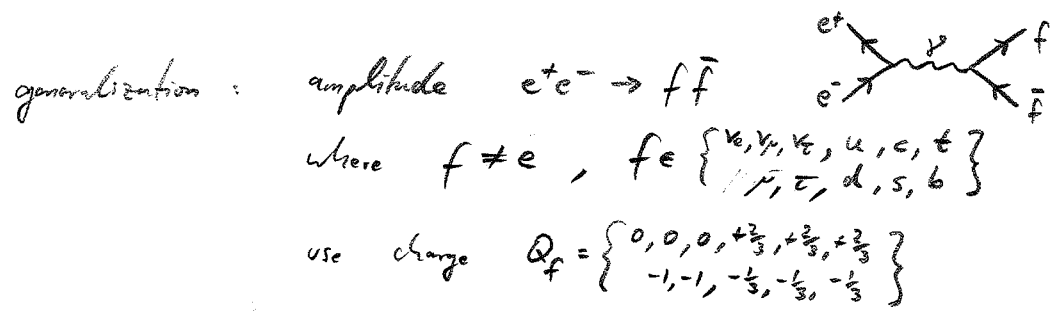 e⁺ γ f
generalization : amplitude e⁺e⁻ → f f̄
e⁻ f̄
where f ≠ e , f ∈ { νe, νμ, ντ, u, c, t
μ⁻, τ⁻, d, s, b }
use charge Q_f = { 0, 0, 0, +2/3, +2/3, +2/3
-1, -1, -1/3, -1/3, -1/3 }